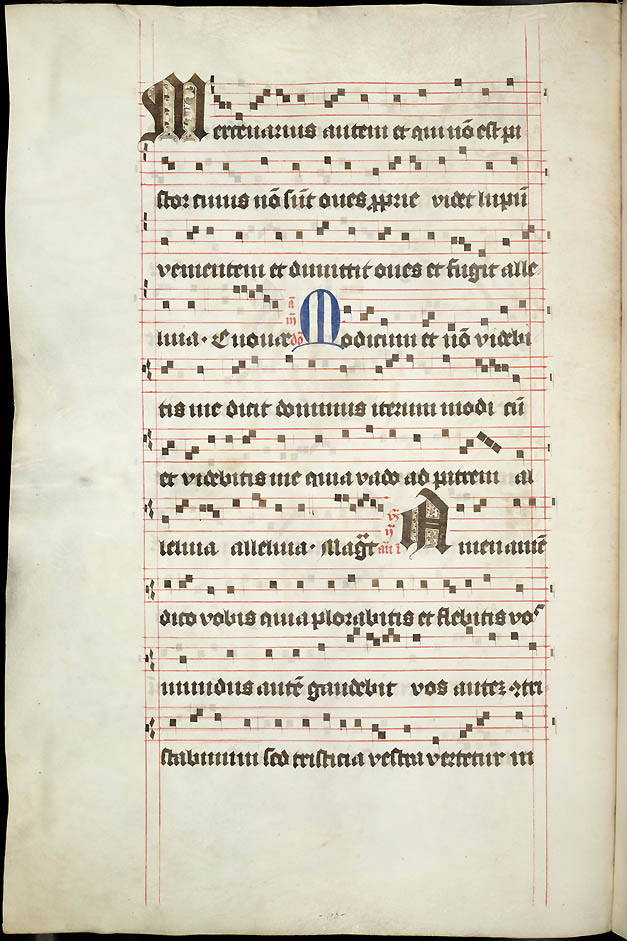 Mercenarius autem et qui nō est pa
stor cuius nō sūt oues ꝓprie videt lupū
venientem et dimittit oues et fugit alle
luia. Euouae dō Modicum et nō videbi
tis me dicit dominus iterum modi cū
et videbitis me quia vado ad patrem al
leluia alleluia. Amen amē
dico vobis quia plorabitis et flebitis vos
mundus autē gaudebit vos autez ꝯtri
stabimini sed tristicia vestra vertetur in